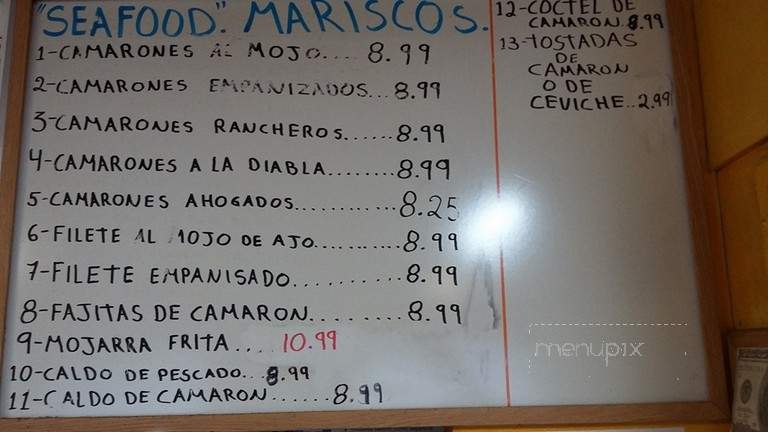 "SEAFOOD". MARISCOS.
1-CAMARONES AL MOJO.... 8.99
2-CAMARONES EMPANIZADOS... 8.99
3-CAMARONES RANCHEROS......8.99
4-CAMARONES A LA DIABLA........8.99
5-CAMARONES AHOGADOS...........8.25
6-FILETE AL MOJO DE AJO...........8.99
7-FILETE EMPANISADO...........8.99
8-FAJITAS DE CAMARON.........8.99
9-MOJARRA FRITA.... 10.99
10-CALDO DE PESCADO...8.99
11-CALDO DE CAMARON......8.99
12-COCTEL DE
CAMARON.8.99
13-TOSTADAS
DE
CAMARON
O DE
CEVICHE..2.99
menupix